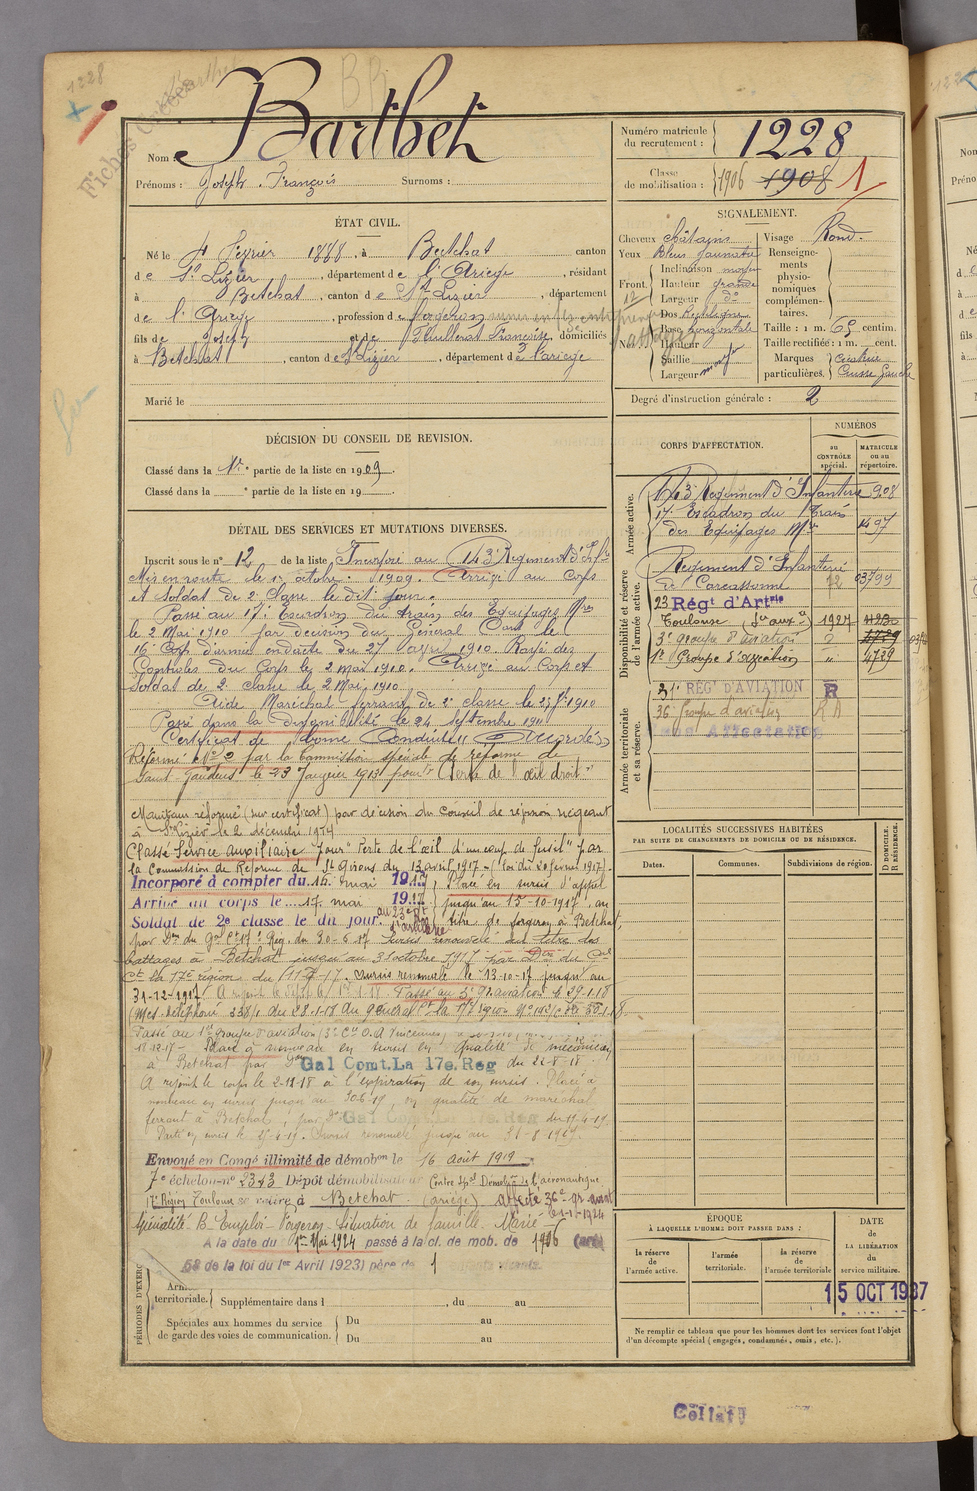 1228
Fiches
Barthet
Nom :
Prénoms : Joseph. François Surnoms :
Numéro matricule du recrutement : 1228
Classe de mobilisation : 1906 1908 1
ÉTAT CIVIL.
Né le 4 Février 1888, à Betchat canton
de St Lizier, département de l'Ariège, résidant
à Betchat, canton de St Lizier, département
de l'Ariège, profession de forgeron
fils de Joseph et de Françoise, domiciliés
à Betchat, canton de St Lizier, département de l'Ariège
Marié le
SIGNALEMENT.
Cheveux châtains Visage Rond.
Yeux Bleus jaunâtre
Front. Inclinaison moyen
Hauteur grande
Largeur do
Nez Dos rectiligne
Base horizontale
Hauteur
Saillie
Largeur moyen
Renseignements physionomiques complémentaires.
Taille : 1 m. 65 centim.
Taille rectifiée : 1 m. cent.
Marques particulières. Cicatrice Cuisse Gauche
Degré d'instruction générale : 2
DÉCISION DU CONSEIL DE REVISION.
Classé dans la 1re partie de la liste en 1909.
Classé dans la e partie de la liste en 19 .
CORPS D'AFFECTATION.
NUMÉROS
au CONTRÔLE spécial.
MATRICULE ou au répertoire.
Armée active.
143e Régiment d'Infanterie 908
17e Escadron du Train
des Equipages Mres 1497
Disponibilité et réserve de l'armée active.
Régiment d'Infanterie
de Carcassonne 12 03799
23 Régt d'Artrie
Toulouse 1927 11230
3e groupe d'aviation 4789
1er Groupe d'aviation " 4789
Armée territoriale et sa réserve.
31e RÉGt D'AVIATION R
36e Groupe d'aviation R A
Sans Affectation
DÉTAIL DES SERVICES ET MUTATIONS DIVERSES.
Inscrit sous le no 12 de la liste Incorporé au 143e Régiment d'Infie
Mis en route le octobre 1909. Arrivé au Corps
et Soldat de 2e Classe le dit jour.
Passé au 17e Escadron du train des Equipages Mres
le 2 Mai 1910 par décision du Général Comt le
16e Corps d'armée en date du 27 avril 1910. Rayé des
Contrôles du Corps le 2 mai 1910. Arrivé au Corps et
Soldat de 2e classe le 2 Mai 1910
Aide Maréchal ferrant de 2e classe le 1910
Passé dans la disponibilité le 24 Septembre 1911
Certificat de bonne Conduite "Accordé"
Réformé No 2 par la Commission spéciale de réforme de
Saint Gaudens le 23 Janvier 1913 pour "Perte de l'œil droit"
Maintenu réformé (sur certificat) par décision du Conseil de révision siégeant
à St Lizier le 2 décembre 1914
Classé Service Auxiliaire pour "Perte de l'œil d'un coup de fusil" par
la Commission de Réforme de St Girons du 13 avril 1917 - (loi du 20 février 1917).
Incorporé à compter du 16 mai 1917 Placé en sursis d'appel
Arrivé au corps le 17 mai 1917 jusqu'au 15-10-1917, au
Soldat de 2e classe le dit jour. titre de forgeron à Betchat,
par Don du Gal Ct 17e Rég. du 30-6-17 Sursis renouvelé au titre des
battages à Betchat jusqu'au 31 octobre 1917 par Don du Gal
Ct la 17e région du 17. Sursis renouvelé le 13-10-17 jusqu'au
31-12-1917 Passé au 3e Gr aviation le 29-1-18
(Mes. téléphoné 238/1 du 28-1-18 du général Ct la 17e région
Passé au 1er groupe d'aviation
Placé à nouveau en sursis en qualité de mécanicien
à Betchat par Gal Comt. La 17e. Rég du 22-8-18
A rejoint le corps le 2-11-18 à l'expiration de son sursis. Placé à
nouveau en sursis jusqu'au 30-6-19, en qualité de maréchal
ferrant à Betchat, par Don Gal Comt. La 17e. Rég du 11-4-19
Parti en sursis le 27-4-19. Sursis renouvelé jusqu'au 31-8-1919
Envoyé en Congé illimité de démobon le 16 Août 1919.
7e échelon no 2343 Dépôt démobilisateur Centre Spal Démobon de l'aéronautique
17e Région Toulouse se retire à Betchat. (Ariège) affecté 36e gr. aviat
Spécialité - B - Emploi - Forgeron - Situation de famille - Marié
A la date du 1er Mai 1924 passé à la cl. de mob. de 1906 (art
58 de la loi du 1er Avril 1923) père de 1 enfants vivants.
LOCALITÉS SUCCESSIVES HABITÉES
PAR SUITE DE CHANGEMENTS DE DOMICILE OU DE RÉSIDENCE.
Dates. Communes. Subdivisions de région. D DOMICILE. R RÉSIDENCE.
ÉPOQUE
À LAQUELLE L'HOMME DOIT PASSER DANS :
la réserve de l'armée active.
l'armée territoriale.
la réserve de l'armée territoriale
DATE de LA LIBÉRATION du service militaire.
15 OCT 1937
Ne remplir ce tableau que pour les hommes dont les services font l'objet
d'un décompte spécial (engagés, condamnés, omis, etc.).
PÉRIODES D'EXERC
Armée territoriale. Supplémentaire dans l , du au
Spéciales aux hommes du service de garde des voies de communication. Du au
Du au